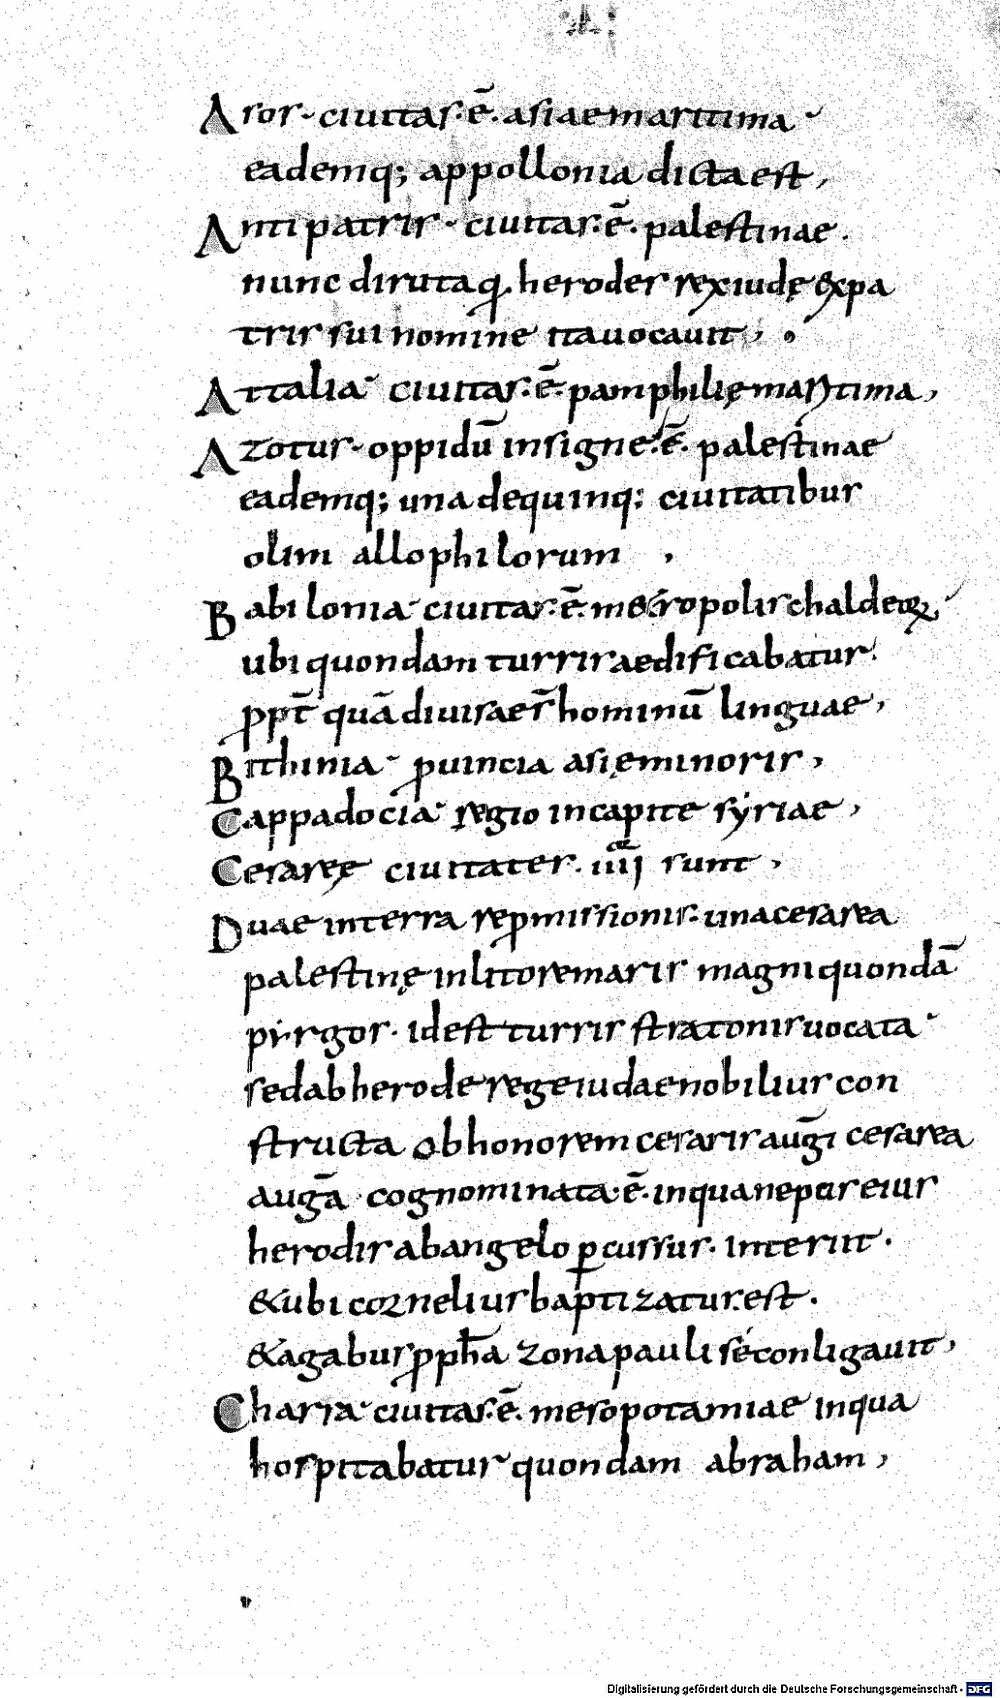 Asos. ciuitas. ē. asiae maritima
eademq; appollonia dicta est,
Antipatris. ciuitas. ē. palestinae.
nunc diruta q̄ herodes rex iudę & pa
tris sui nomine ita uocauit,
Attalia ciuitas. ē. pamphilię maritima,
Azotus. oppidū insigne. ē. palestinae
eademq; una de quinq; ciuitatibus
olim allophilorum,
Babilonia ciuitas. ē. metropolis chaldeoꝝ,
ubi quondam turris aedificabatur
ꝓpt̄ quā diuisae s̄ hominū linguae,
Bithinia ꝓuincia asię minoris,
Cappadocia regio in capite syriae,
Cesareę ciuitates. iiii sunt,
Duae in terra repmissionis. una cesarea
palestinę in litore maris magni quondā
pyrgos. id est turris stratonis uocata
sed ab herode rege iudae nobilius con
structa ob honorem cesaris aug̅i cesarea
aug̅a cognominata ē. in qua eius
herodis ab angelo ꝑcussus. interiit.
& ubi cornelius baptizatus est.
& agabus ꝓph̄a zona pauli se conligauit,
Charra ciuitas. ē. mesopotamiae in qua
hospitabatur quondam abraham,
Digitalisierung gefördert durch die Deutsche Forschungsgemeinschaft - DFG